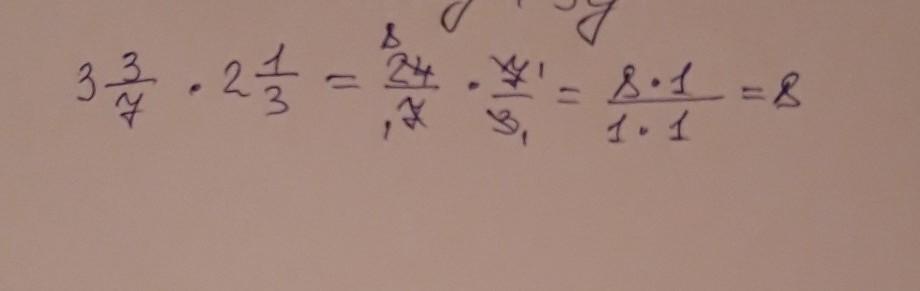 3 3/7 · 2 1/3 = 24/7 · 7/3 = 8·1/1·1 = 8